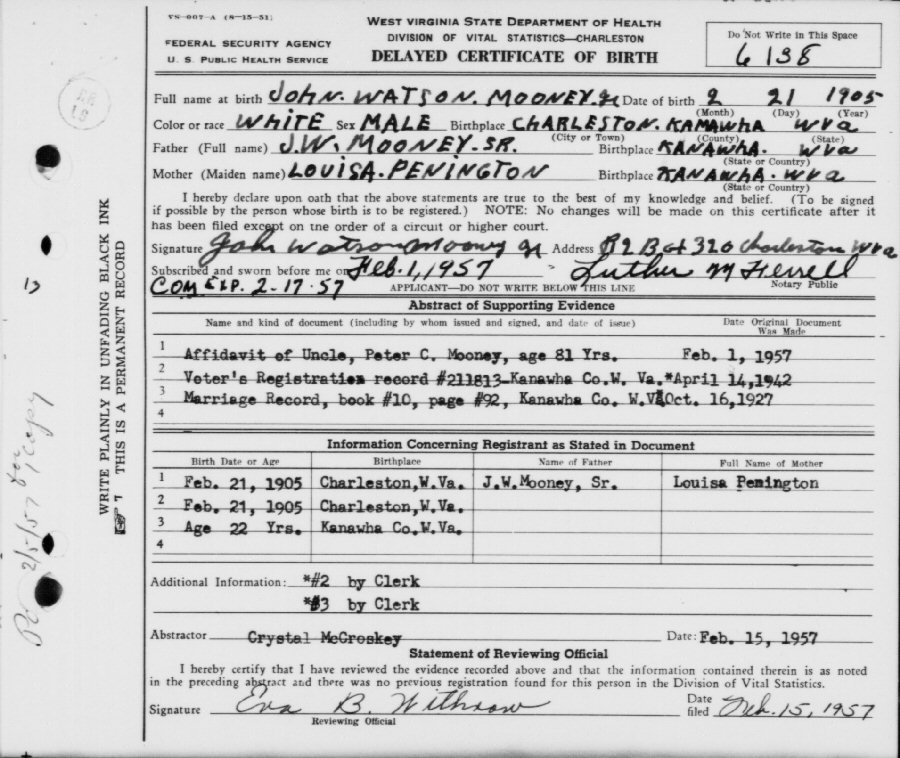 VS-007-A (8-15-51)
FEDERAL SECURITY AGENCY
U. S. PUBLIC HEALTH SERVICE
WEST VIRGINIA STATE DEPARTMENT OF HEALTH
DIVISION OF VITAL STATISTICS—CHARLESTON
DELAYED CERTIFICATE OF BIRTH
Do Not Write in This Space
6138
Full name at birth JOHN. WATSON. MOONEY. Jr Date of birth 2 21 1905
(Month) (Day) (Year)
Color or race WHITE Sex MALE Birthplace CHARLESTON. KANAWHA W Va
(City or Town) (County) (State)
Father (Full name) J.W. MOONEY. SR. Birthplace KANAWHA. W Va
(State or Country)
Mother (Maiden name) LOUISA. PENINGTON Birthplace KANAWHA. W Va
(State or Country)
I hereby declare upon oath that the above statements are true to the best of my knowledge and belief. (To be signed
if possible by the person whose birth is to be registered.) NOTE: No changes will be made on this certificate after it
has been filed except on the order of a circuit or higher court.
Signature John Watson Mooney Jr Address R 2 Box 320 Charleston W Va
Subscribed and sworn before me on Feb. 1, 1957 Luther M Ferrell
Notary Public
COM EXP. 2-17-57 APPLICANT—DO NOT WRITE BELOW THIS LINE
Abstract of Supporting Evidence
Name and kind of document (including by whom issued and signed, and date of issue) Date Original Document
Was Made
1 Affidavit of Uncle, Peter C. Mooney, age 81 Yrs. Feb. 1, 1957
2 Voter's Registration record #211813-Kanawha Co.W. Va.*April 14,1942
3 Marriage Record, book #10, page #92, Kanawha Co. W.Va Oct. 16,1927
4
Information Concerning Registrant as Stated in Document
Birth Date or Age Birthplace Name of Father Full Name of Mother
1 Feb. 21, 1905 Charleston,W.Va. J.W.Mooney, Sr. Louisa Penington
2 Feb. 21, 1905 Charleston,W.Va.
3 Age 22 Yrs. Kanawha Co.W.Va.
4
Additional Information: *#2 by Clerk
*#3 by Clerk
Abstractor Crystal McCroskey Date: Feb. 15, 1957
Statement of Reviewing Official
I hereby certify that I have reviewed the evidence recorded above and that the information contained therein is as noted
in the preceding abstract and there was no previous registration found for this person in the Division of Vital Statistics.
Signature Eva B. Withrow Date
filed Feb. 15, 1957
Reviewing Official
WRITE PLAINLY IN UNFADING BLACK INK
THIS IS A PERMANENT RECORD
2/5/57 for 1 copy